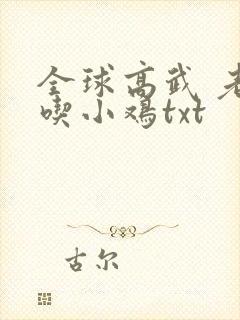 全球高武 老
喫小鸡txt
古尔